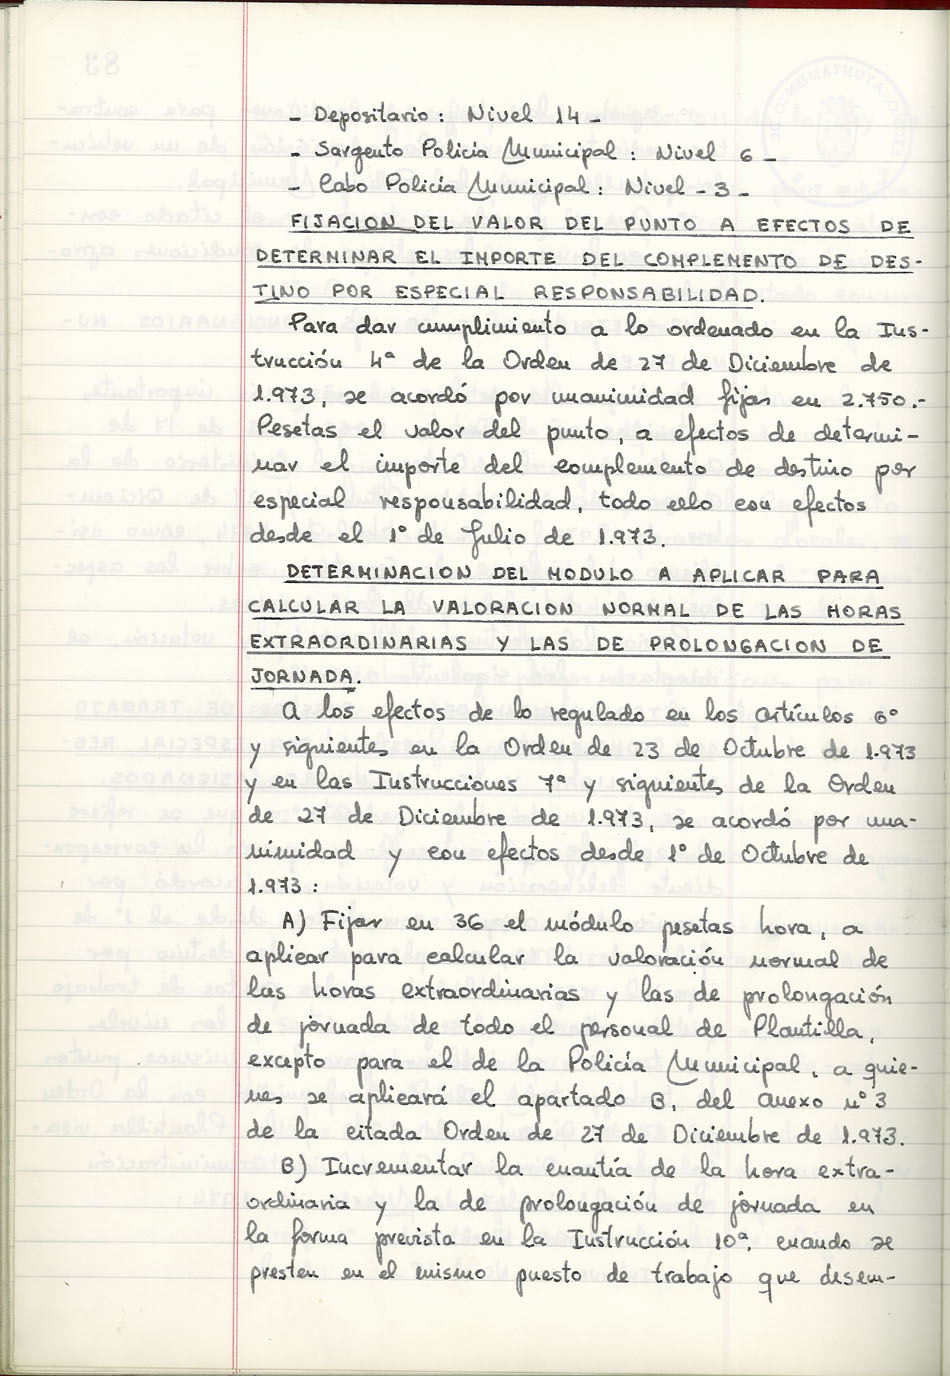 - Depositario: Nivel 14 -
- Sargento Policía Municipal: Nivel 6 -
- Cabo Policía Municipal: Nivel - 3 -
FIJACION DEL VALOR DEL PUNTO A EFECTOS DE
DETERMINAR EL IMPORTE DEL COMPLEMENTO DE DES-
TINO POR ESPECIAL RESPONSABILIDAD.
Para dar cumplimiento a lo ordenado en la Ins-
trucción 4ª de la Orden de 27 de Diciembre de
1.973, se acordó por unanimidad fijar en 2.750.-
Pesetas el valor del punto, a efectos de determi-
nar el importe del complemento de destino por
especial responsabilidad, todo ello con efectos
desde el 1º de Julio de 1.973.
DETERMINACION DEL MODULO A APLICAR PARA
CALCULAR LA VALORACION NORMAL DE LAS HORAS
EXTRAORDINARIAS Y LAS DE PROLONGACION DE
JORNADA.
A los efectos de lo regulado en los artículos 6º
y siguientes en la Orden de 23 de Octubre de 1.973
y en las Instrucciones 7ª y siguientes de la Orden
de 27 de Diciembre de 1.973, se acordó por una-
nimidad y con efectos desde 1º de Octubre de
1.973:
A) Fijar en 36 el módulo pesetas hora, a
aplicar para calcular la valoración normal de
las horas extraordinarias y las de prolongación
de jornada de todo el personal de Plantilla,
excepto para el de la Policía Municipal, a quie-
nes se aplicará el apartado B, del anexo nº 3
de la citada Orden de 27 de Diciembre de 1.973.
B) Incrementar la cuantía de la hora extra-
ordinaria y la de prolongación de jornada en
la forma prevista en la Instrucción 10ª, cuando se
presten en el mismo puesto de trabajo que desem-